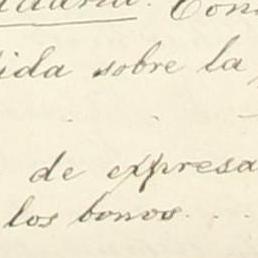 Con
ida sobre la
de expresa
los bonos. . .